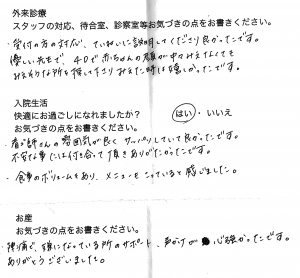 外来診療
スタッフの対応、待合室、診察室等お気づきの点をお書きください。
・受付の方の対応、ていねいに説明してくださり良かったです。
優しい先生で、4Dで赤ちゃんの顔が中々みえなくても
みえそうな所を探して下さりみえた時は嬉しかったです。
入院生活
快適にお過ごしになれましたか？
はい・いいえ
お気づきの点をお書きください。
・看ゴ師さんの雰囲気が良く サッパリしていて良かったです。
不安な事には付き合って頂きありがたかったです。
・食事のボリュームもあり、メニューもこっていると感じました。
お産
お気づきの点をお書きください。
・陣痛で、痛くなっている所のサポート、声かけが 心強かったです。
ありがとうございました。